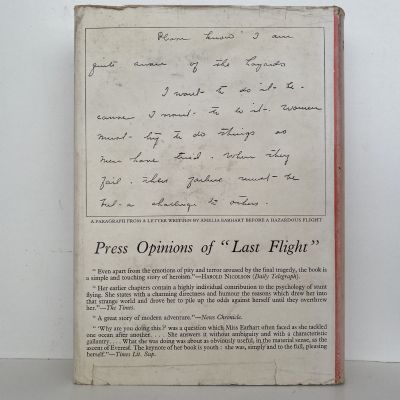 Please know I am
quite aware of the hazards
I want to do it be-
cause I want to do it. Women
must try to do things as
men have tried. When they
fail, their failure must be
but a challenge to others.
A PARAGRAPH FROM A LETTER WRITTEN BY AMELIA EARHART BEFORE A HAZARDOUS FLIGHT
Press Opinions of "Last Flight"
"Even apart from the emotions of pity and terror aroused by the final tragedy, the book is
a simple and touching story of heroism."—HAROLD NICOLSON (Daily Telegraph).
"Her earlier chapters contain a highly individual contribution to the psychology of stunt
flying. She states with a charming directness and humour the reasons which drew her into
that strange world and drove her to pile up the odds against herself until they overthrew
her."—The Times.
"A great story of modern adventure."—News Chronicle.
"Why are you doing this?' was a question which Miss Earhart often faced as she tackled
one ocean after another. . . . She answers it without ambiguity and with a characteristic
gallantry. . . . What she was doing was about as obviously useful, in the material sense, as the
ascent of Everest. The keynote of her book is youth: she was, simply and to the full, pleasing
herself."—Times Lit. Sup.